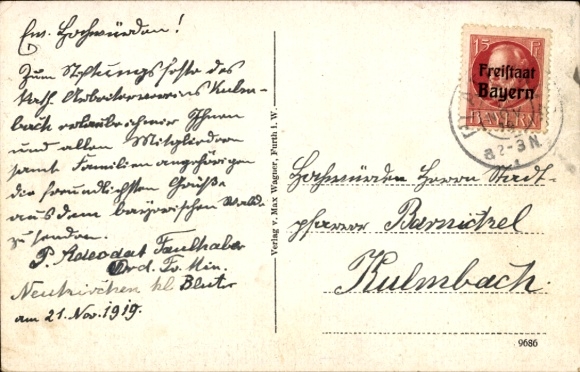 Ew. Hochwürden!
Zum Stiftungsfeste des
Kath. Arbeitervereins Kulm-
bach erlaube ich mir Ihnen
und allen Mitgliedern
samt Familienangehörigen
die freundlichsten Grüße
aus dem bayrischen Wald
zu senden.
P. Adeodat Faulhaber
Ord. Fr. Min.
Neukirchen hl Blut
am 21. Nov. 1919.
Verlag v. Max Wagner, Furth i. W.
15 Pf
Freistaat
Bayern
BAYERN
8 2-3 N.
Hochwürden Herrn Stadt-
pfarrer Barnickel
Kulmbach.
9686